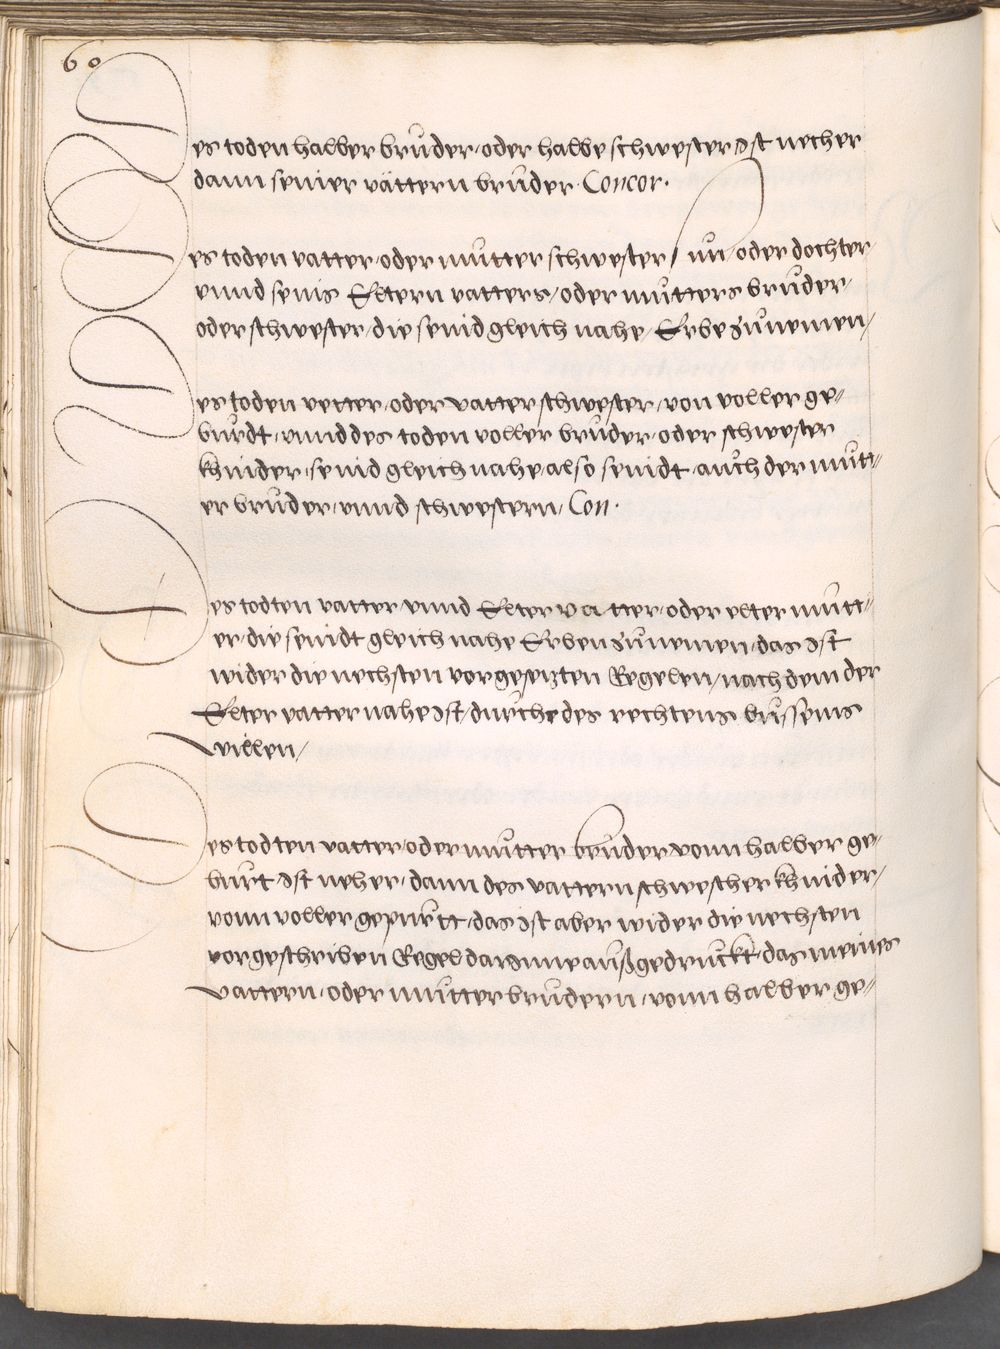 60
Des toden halber brůder, oder halbe schwester, ist necher
dann seiner vättern brůder. Concor.
Des toden vatter oder můtter schwester, oder dochter
vnnd seins Eltern vatters, oder můtters brůder,
oder schwester, die seind gleich nahe, Erbe zůnemen,
Des toden vetter, oder vatter schwester, von voller ge-
bůrdt, vnnd des toden voller brůder, oder schwester
khinder, seind gleich nahe, also seindt aůch der můtt-
er brůder, vnnd schwestern, Con.
Des todten vatter, vnnd Elter vatter, oder elter můtt-
er, die seindt gleich nahe Erben zůnemen, das ist
wider die nechsten vorgesetzten Regelen, nach dem der
Elter vatter nahe ist, důrch des rechtens
willen,
Des todten vatter, oder můtter brůder vonn halber ge-
bůrt, ist neher, dann des vattern schwescher khinder,
vonn voller gepůrtt, das ist aber wider die nechsten
vorgeschriben Regel darinne außgedrůckt, das meines
vattern, oder můtter brůdern, vonn halber ge-